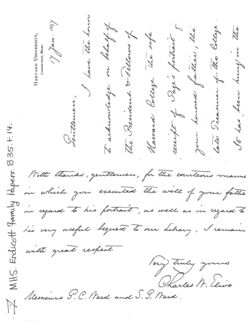 HARVARD UNIVERSITY,
CAMBRIDGE, MASS.
17 Jan. 1897
Gentlemen,
I have the honor
to acknowledge on behalf of
the President & Fellows of
Harvard College the safe
receipt of Page's portrait of
your honored father, the
late Treasurer of the College.
It has been hung in the
With thanks, gentlemen, for the courteous manner
in which you executed the will of your father
in regard to his portrait, as well as in regard to
his very useful bequest to our Library, I remain
with great respect
Very truly yours
Charles W. Eliot
Messieurs P.C. Ward and S.G. Ward.
MHS. Endicott Family Papers. B35. f.14.